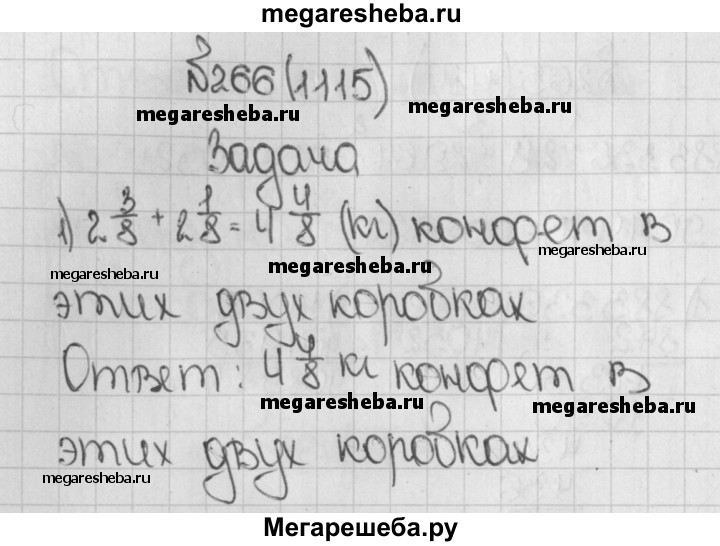 megaresheba.ru
№266(1115)
megaresheba.ru
megaresheba.ru
Задача
1) 2 3/8 + 2 1/8 = 4 4/8 (кг) конфет в
megaresheba.ru
megaresheba.ru
megaresheba.ru
этих двух коробках
Ответ: 4 4/8 кг конфет в
megaresheba.ru
megaresheba.ru
этих двух коробках
megaresheba.ru
Мегарешеба.ру